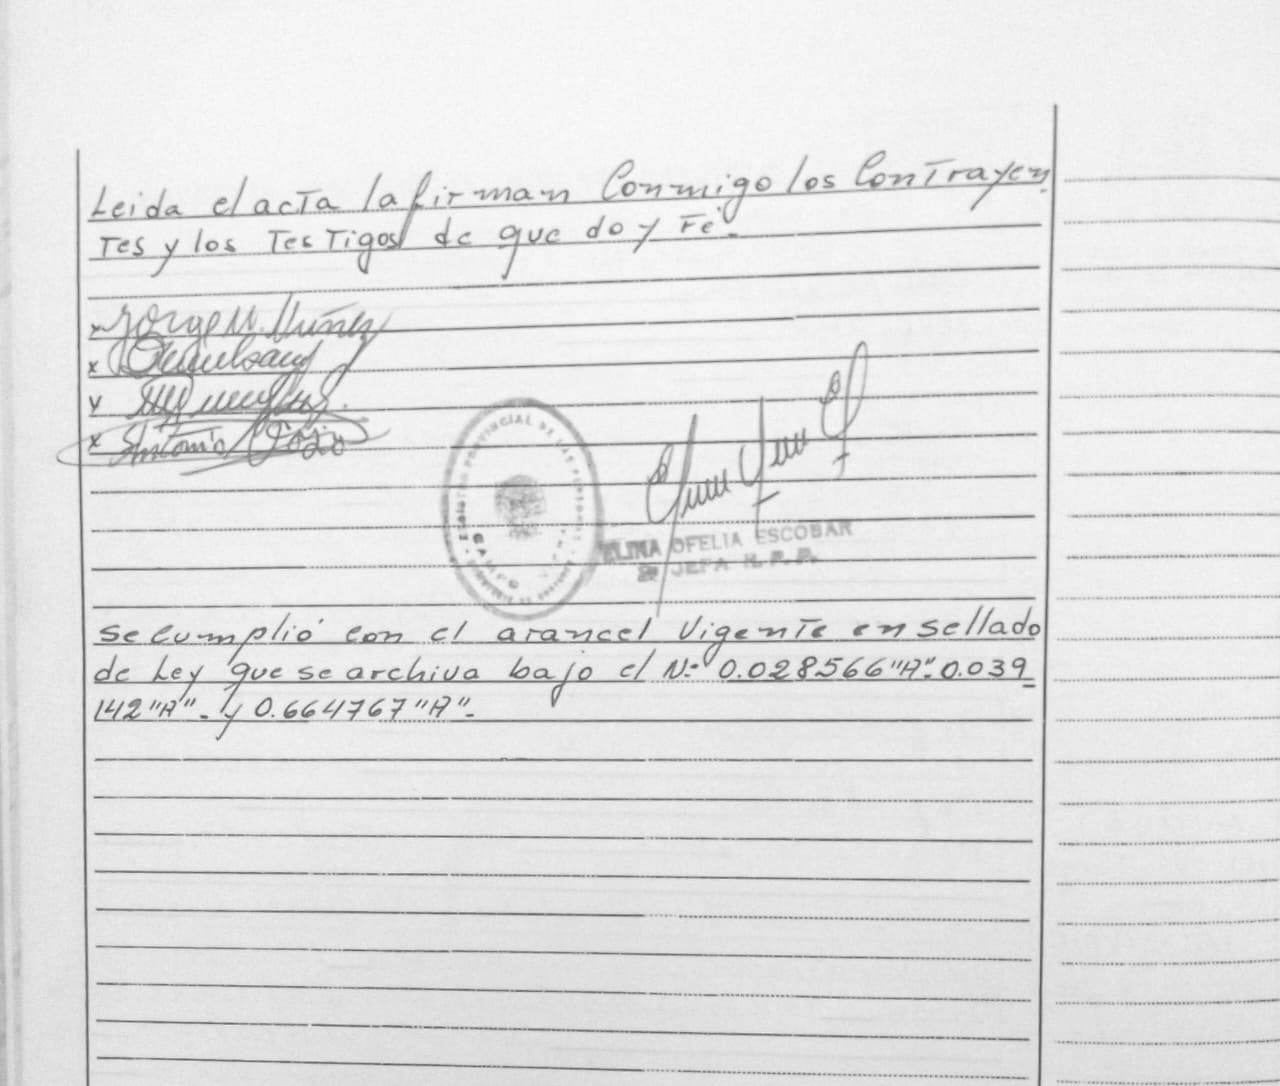 Leida el acta la firman Conmigo los Contrayen
tes y los Testigos de que doy Fé.
x Jorge N. Núñez
x
x
x Antonio
REGISTRO PROVINCIAL DE LAS PERSONAS
OFELIA ESCOBAR
JEFA
Se Cumplió con el arancel Vigente en sellado
de Ley que se archiva bajo el Nº 0.028566"A". 0.039
142"A". y 0.664767"A".